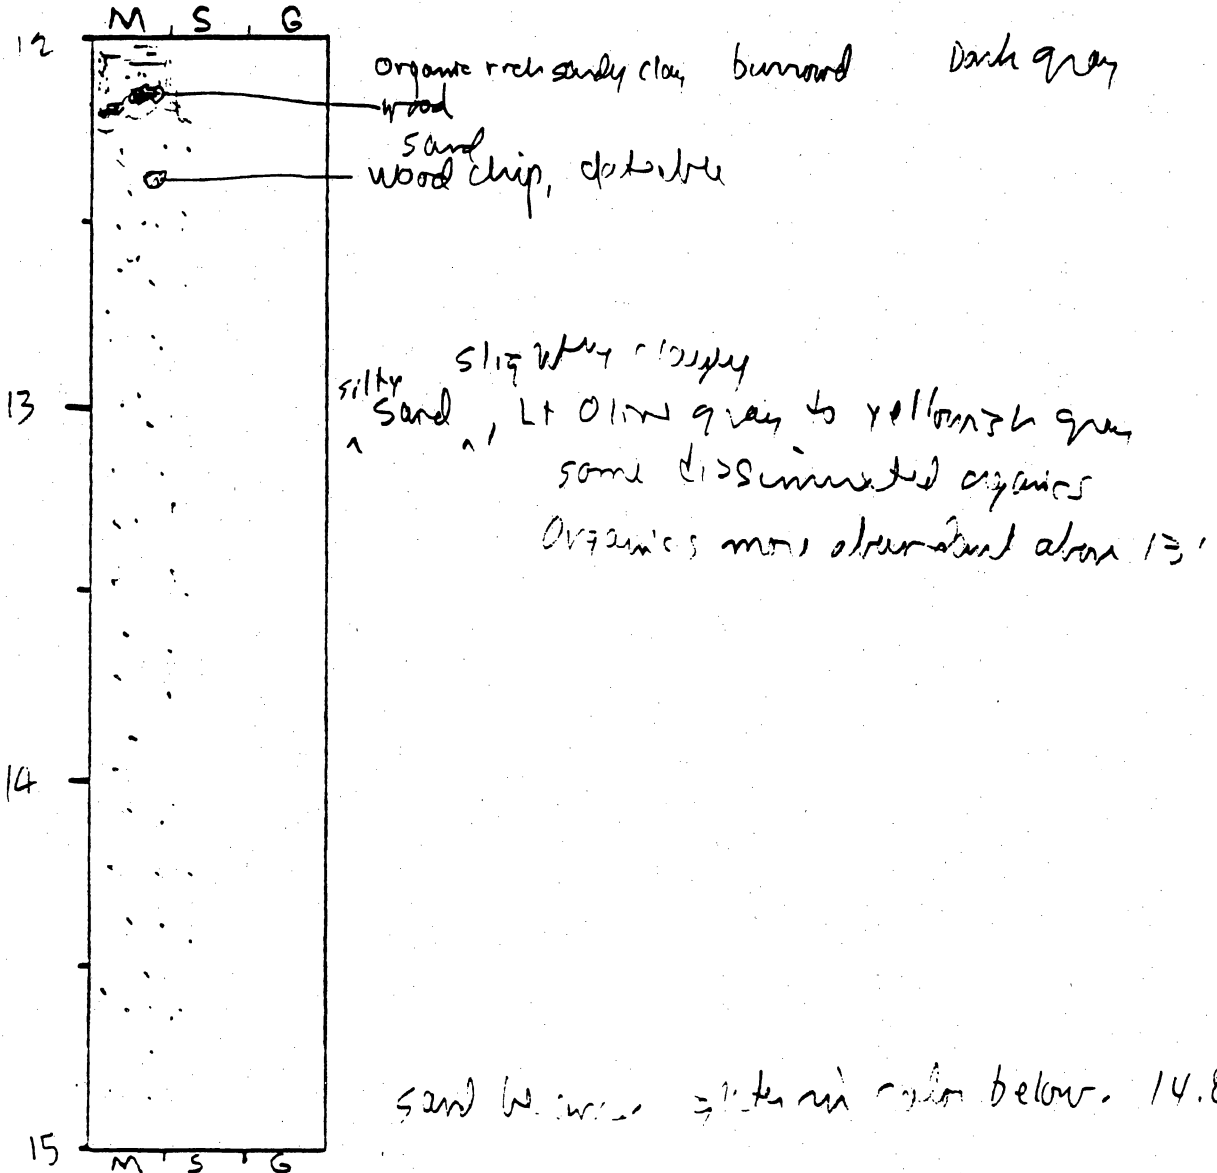 M S G
12
organic rich sandy clay burrowed Dark gray
wood
sand
wood chip, datable
slightly clayey
silty
13 sand , Lt Olive gray to yellowish gray
some dissiminated organics
Organics more abundant above 13'
14
sand in color below 14.8
15
M S G